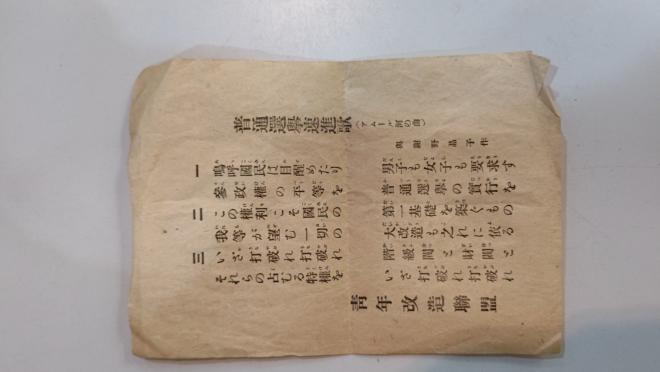 普通選擧速進歌（アムール河の曲）
與謝野晶子作
一 嗚呼國民は目醒めたり 男子も女子も要求す
參政權の平等を 普通選擧の實行を
二 この權利こそ國民の 第一基礎を築くもの
我等が望む一切の 大改造も之れに依る
三 いざ打破れ打破れ 階級閥と財閥と
それらの占むる特權を いざ打破れ打破れ
青年改造聯盟